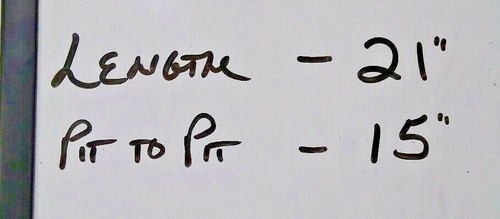 LENGTH - 21"
PIT TO PIT - 15"